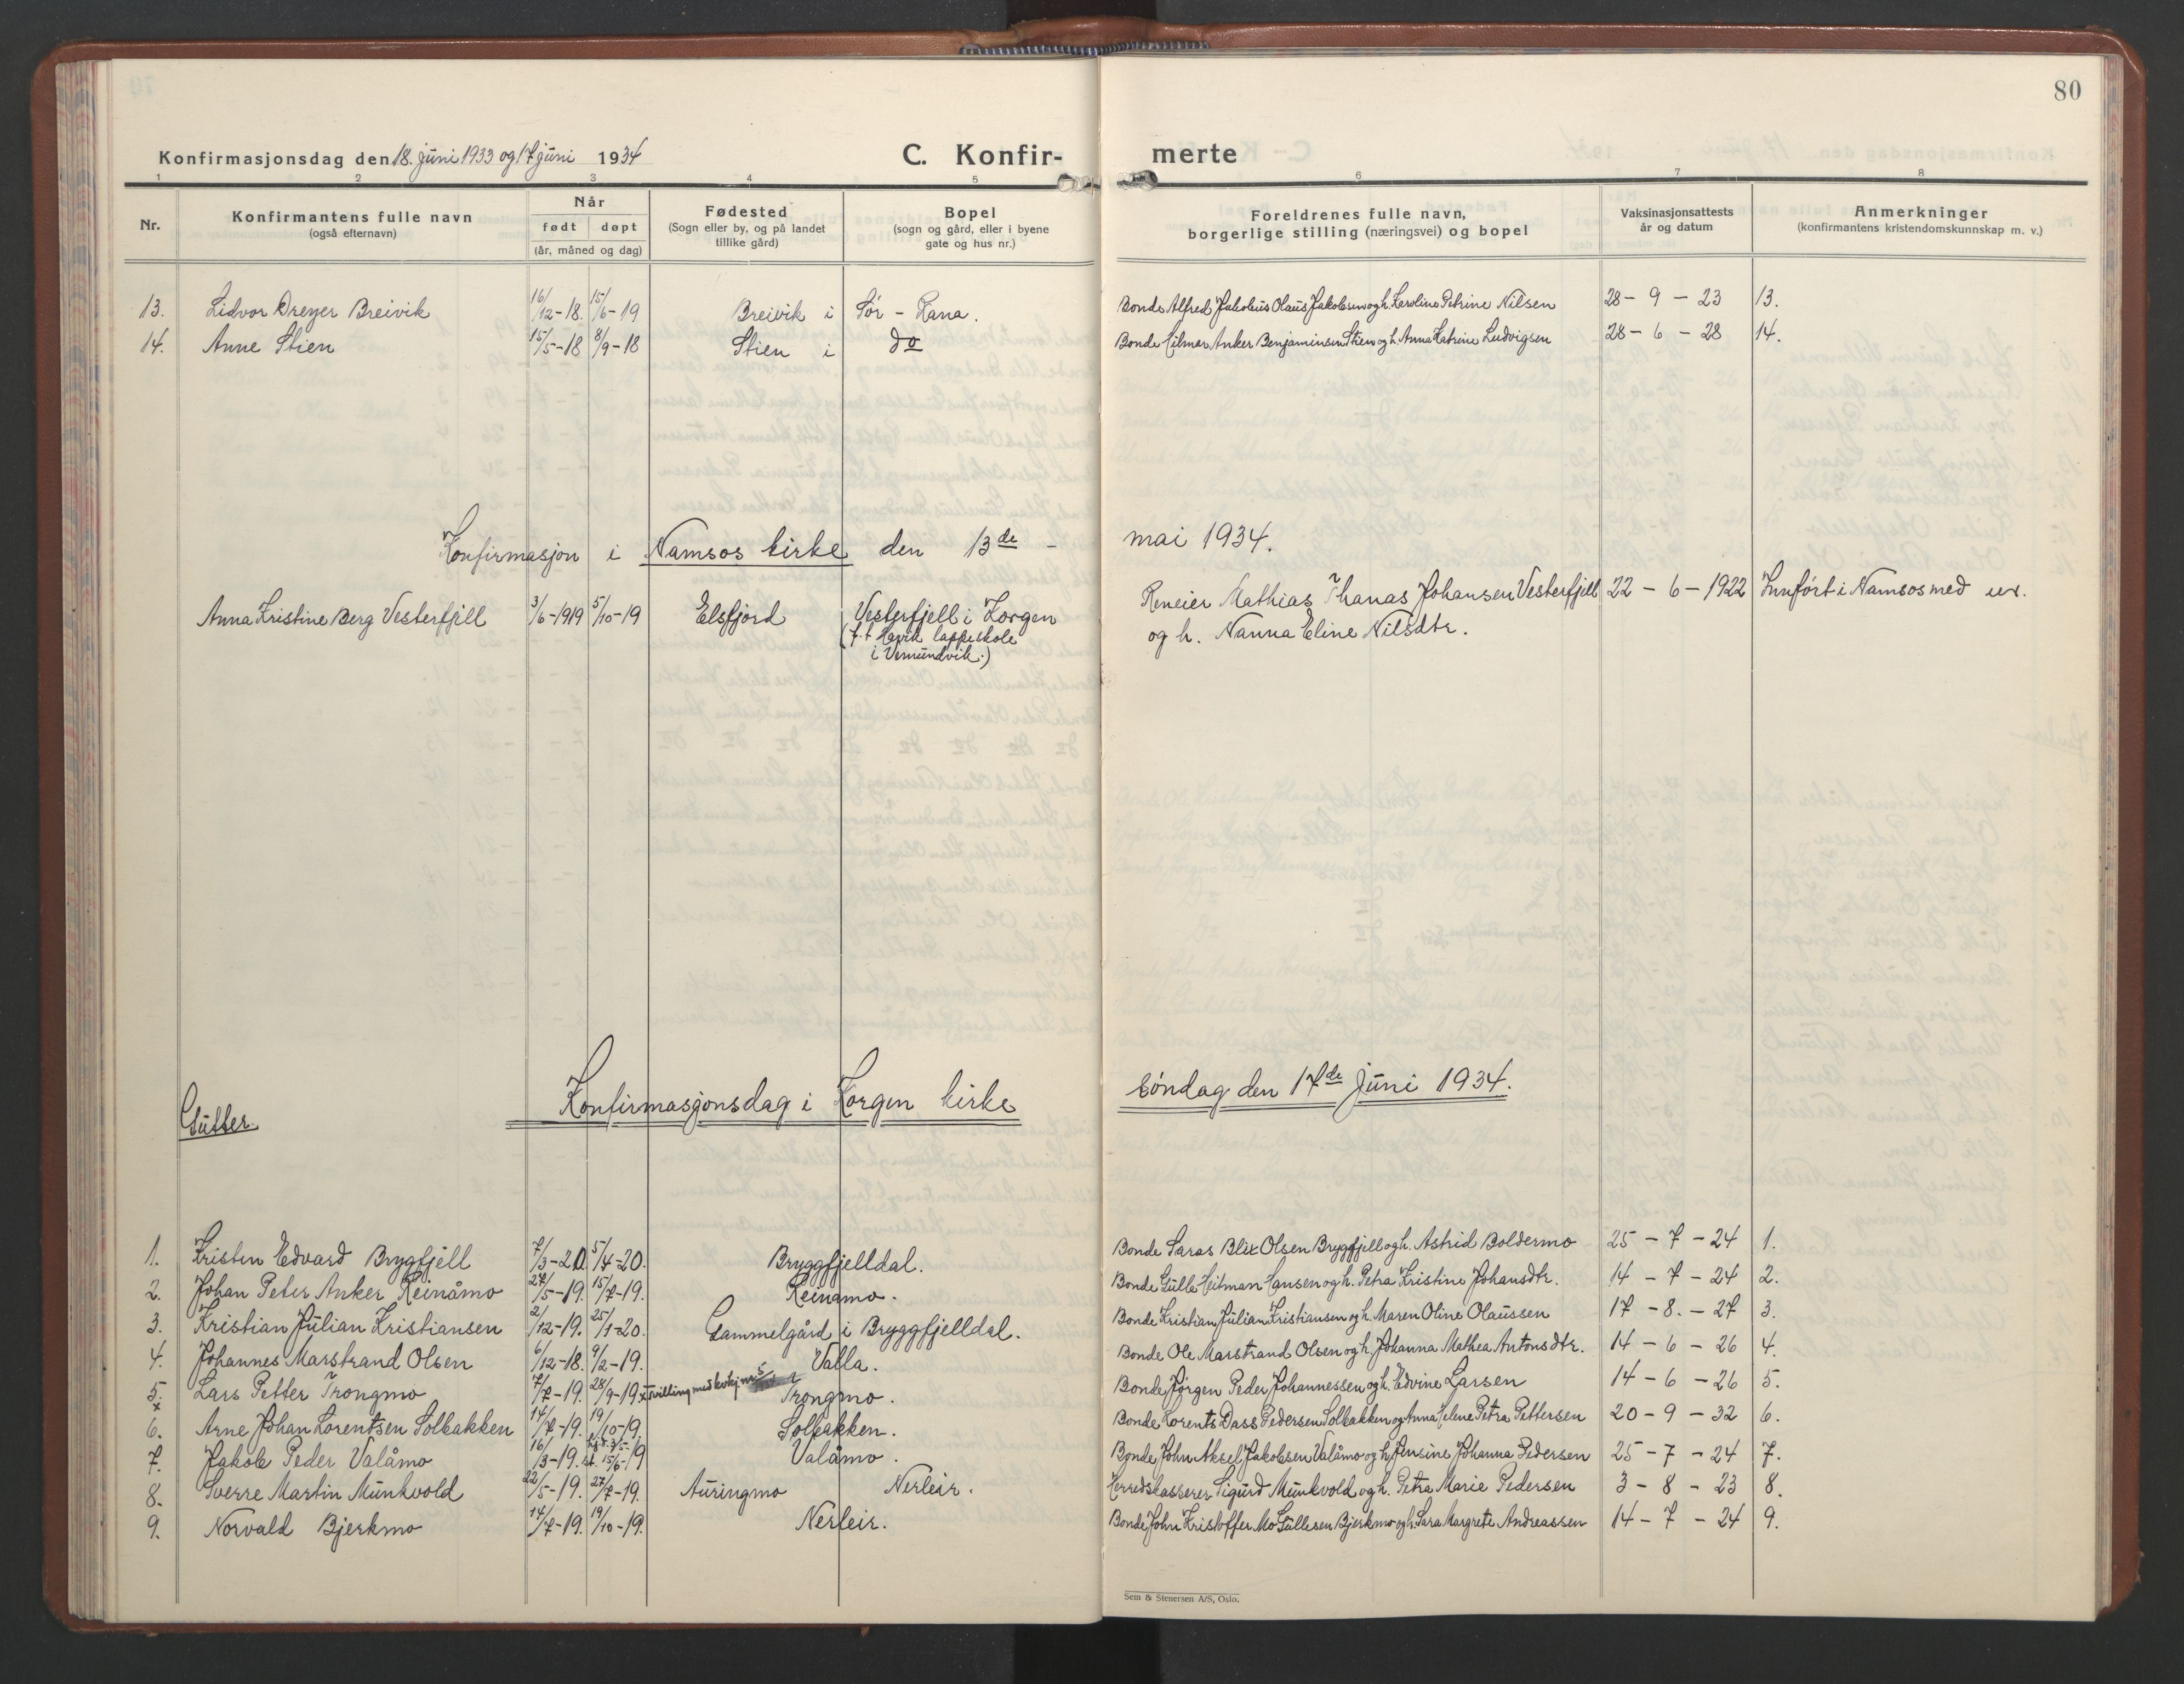 80
Konfirmasjonsdag den 18. juni 1933 og 17 juni 1934
C. Konfir- merte
1 2 3 4 5 6 7 8
Nr.
Konfirmantens fulle navn
(også efternavn)
Når
født døpt
(år, måned og dag)
Fødested
(Sogn eller by, og på landet
tillike gård)
Bopel
(sogn og gård, eller i byene
gate og hus nr.)
Foreldrenes fulle navn,
borgerlige stilling (næringsvei) og bopel
Vaksinasjonsattests
år og datum
Anmerkninger
(konfirmantens kristendomskunnskap m. v.)
13. Lidvor Dreyer Breivik 16/12-18. 15/6-19 Breivik i Sør-Rana. Bonde Alfred Jakobus Olaus Jakobsen og h. Karoline Petrine Nilsen 28-9-23 13.
14. Anne Stien 15/5-18 8/9-18 Stien i do Bonde Hilmar Anker Benjaminsen Stien og h. Anna Katrine Ludvigsen 28-6-28 14.
Konfirmasjon i Namsos kirke den 13de - mai 1934.
Anna Kristine Berg Vesterfjell 3/6-1919 5/10-19 Elsfjord Vesterfjell i Korgen Reneier Mathias Thanas Johansen Vesterfjell 22-6-1922 Innført i Namsos med
(f.t Havik lappeskole og h. Nanna Eline Nilsdtr.
i Vemundvik.)
Gutter. Konfirmasjonsdag i Korgen kirke søndag den 17de juni 1934.
1. Kristen Edvard Brygfjell 7/3-20. 5/4-20. Bryggfjelldal. Bonde Saras Blix Olsen Bryggfjell og h. Astrid Boldermo 25-7-24 1.
2. Johan Peter Anker Reinåmo 27/5-19. 15/7-19. Reinåmo. Bonde Gulle Heitman Hansen og h. Petra Kristine Johansdtr. 14-7-24 2.
3. Kristian Julian Kristiansen 2/12-19. 25/1-20. Gammelgård i Bryggfjelldal. Bonde Kristian Julian Kristiansen og h. Maren Oline Olaussen 17-8.-27 3.
4. Johannes Marstrand Olsen 6/12-18. 9/2-19. Valla. Bonde Ole Marstrand Olsen og h. Johanna Mathea Antonsdtr. 14-6-26 4.
5. Lars Petter Trongmo 7/7-19. 28/9-19 x tvilling med Trongmo. Bonde Jørgen Peder Johannessen og h. Edvine Larsen 14-6-26 5.
x
6. Arne Johan Lorentsen Solbakken 14/7-19. 19/10-19. Solbakken. Bonde Lorents Dass Pedersen Solbakken og Anna Helene Petra Pettersen 20-9-32 6.
7. Jakob Peder Valåmo 16/3-19. hj.d. 3/5- st. 15/6-19 Valåmo. Bonde John Aksel Jakobsen Valåmo og h. Jensine Johanna Pedersen 25-7-24 7.
8. Sverre Martin Munkvold 22/5-19. 27/7-19. Auringmo Nerleir. Herredskasserer Sigurd Munkvold og h. Petra Marie Pedersen 3-8-23 8.
9. Norvald Bjerkmo 14/7-19. 19/10-19. Nerleir. Bonde John Kristoffer Mo Gullesen Bjerkmo og h. Sara Margrete Andreassen 14-7-24 9.
Sem & Stenersen A/S, Oslo.